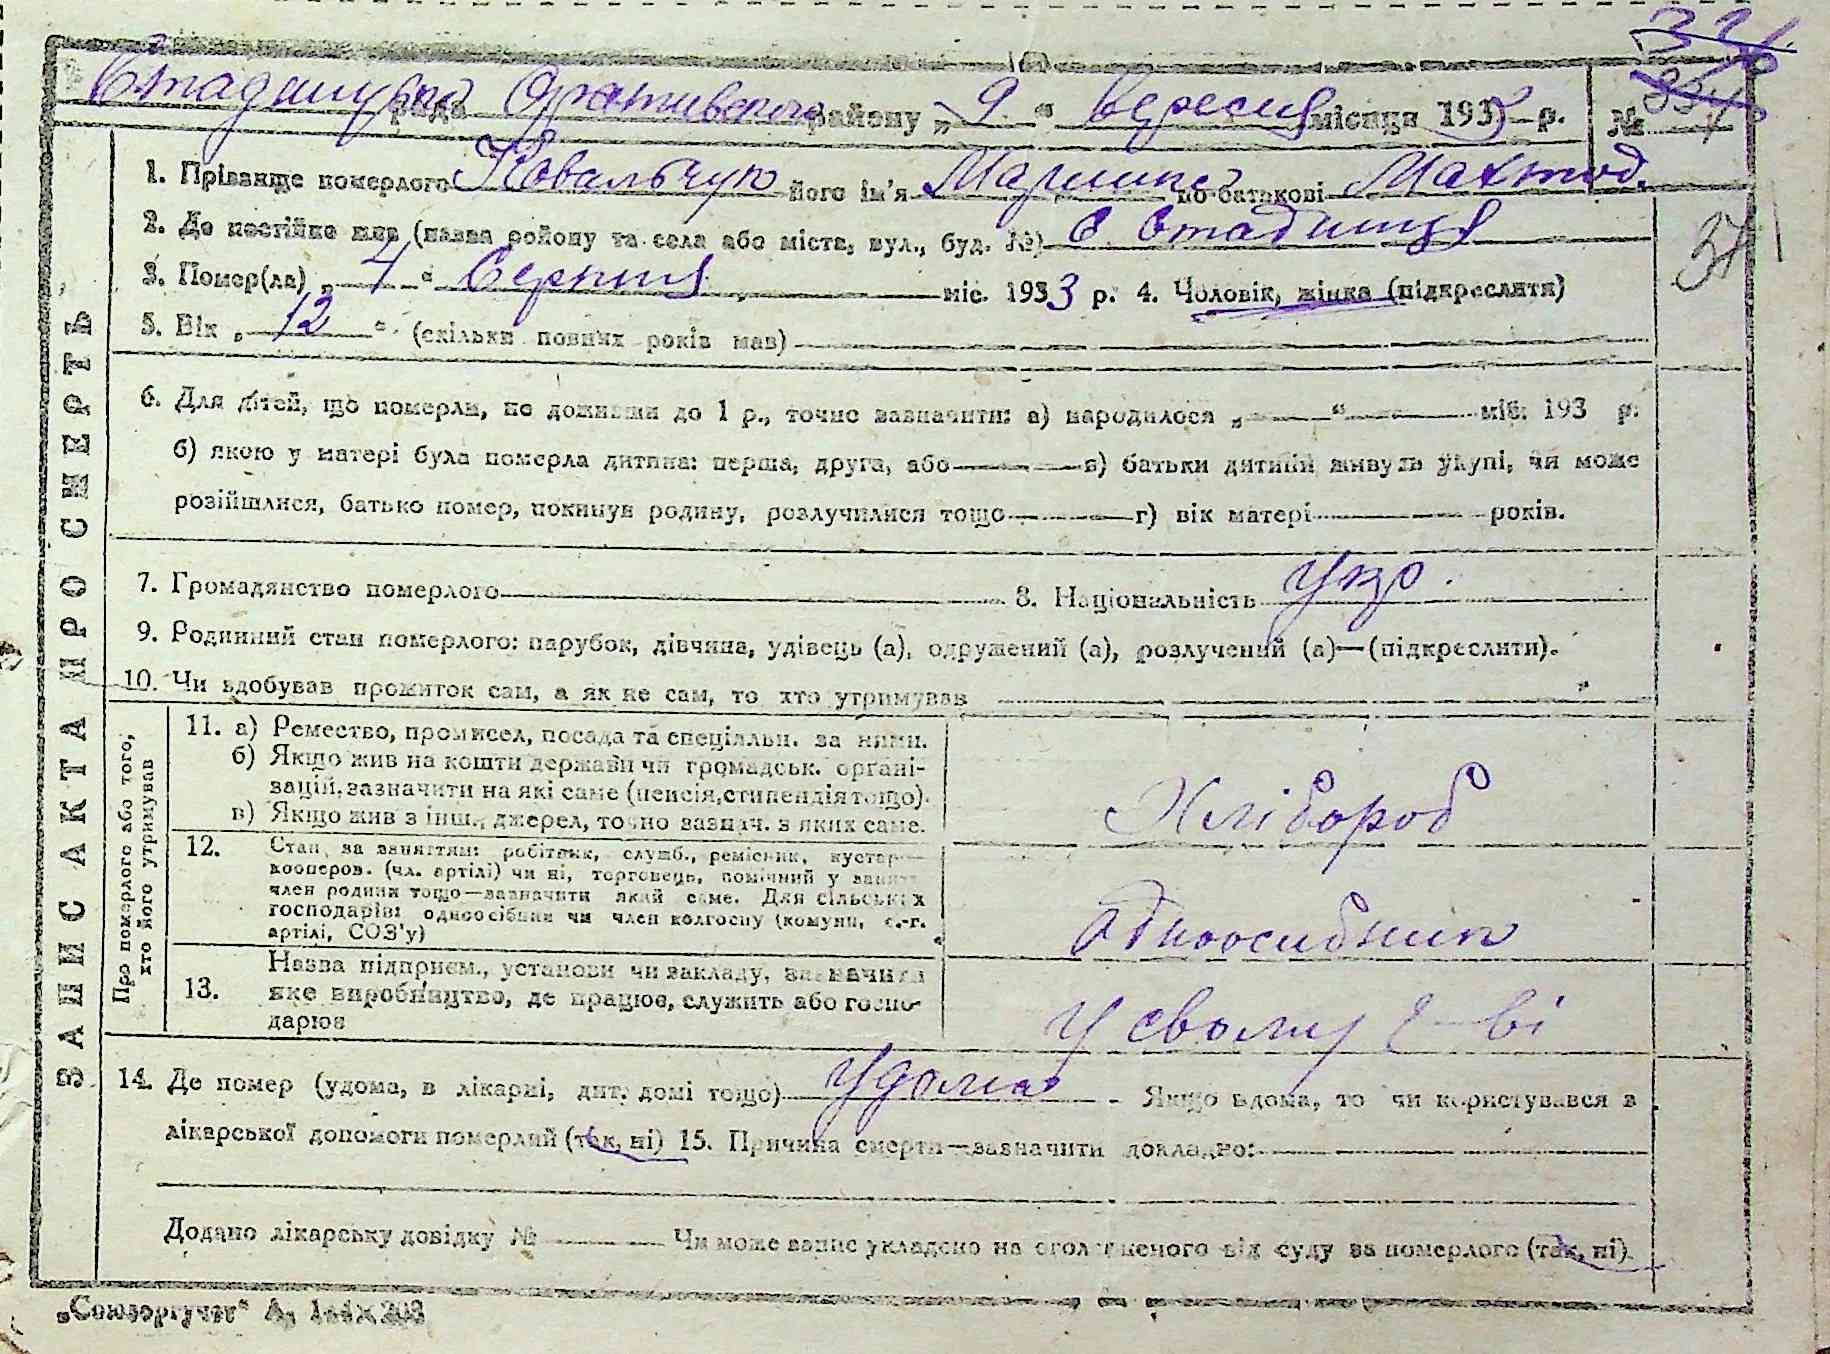 Стадницька рада Оратівського району „9“ вересня місяця 1933 р. №
1. Прізвище померлого Ковальчук його ім'я Маришка по батькові Махтод.
2. Де постійно жив (назва району та села або міста, вул., буд. №) с Стадниця
3. Помер(ла) „4“ Серпня міс. 1933 р. 4. Чоловік, жінка (підкреслити)
37
5. Вік „12“ (скільки повних років мав)
6. Для дітей, що померли, не доживши до 1 р., точно зазначити: а) народилося „ “ міс. 193 р.
б) якою у матері була померла дитина: перша, друга, або в) батьки дитини живуть укупі, чи може
розійшлися, батько помер, покинув родину, розлучилися тощо г) вік матері років.
7. Громадянство померлого 8. Національність укр.
9. Родинний стан померлого: парубок, дівчина, удівець (а), одружений (а), розлучений (а)—(підкреслити).
10. Чи здобував прожиток сам, а як не сам, то хто утримував
ЗАПИС АКТА ПРО СМЕРТЬ
Про померлого або того, хто його утримував
11. а) Ремество, промисел, посада та спеціяльн. за ними.
б) Якщо жив на кошти держави чи громадськ. органі-
зацій, зазначити на які саме (пенсія, стипендія тощо).
в) Якщо жив з інш., джерел, точно зазнач. з яких саме.
Хлібороб
12. Стан за заняттям: робітник, служб., ремісник, кустар—
кооперов. (чл. артілі) чи ні, торговець, помічний у занят.
член родини тощо—зазначити який саме. Для сільських
господарів: одноосібник чи член колгоспу (комуни, с.-г.
артілі, СОЗ'у)
Одноосибник
13. Назва підприєм., установи чи закладу, зазначити
яке виробництво, де працює, служить або госпо-
дарює
У своему г-ві
14. Де помер (удома, в лікарні, дит. домі тощо) Удома Якщо вдома, то чи користувався з
лікарської допомоги померлий (так, ні) 15. Причина смерти—зазначити докладно:
Додано лікарську довідку № Чи може запис укладено на оголошеного від суду за померлого (так, ні).
„Союзоргучет“